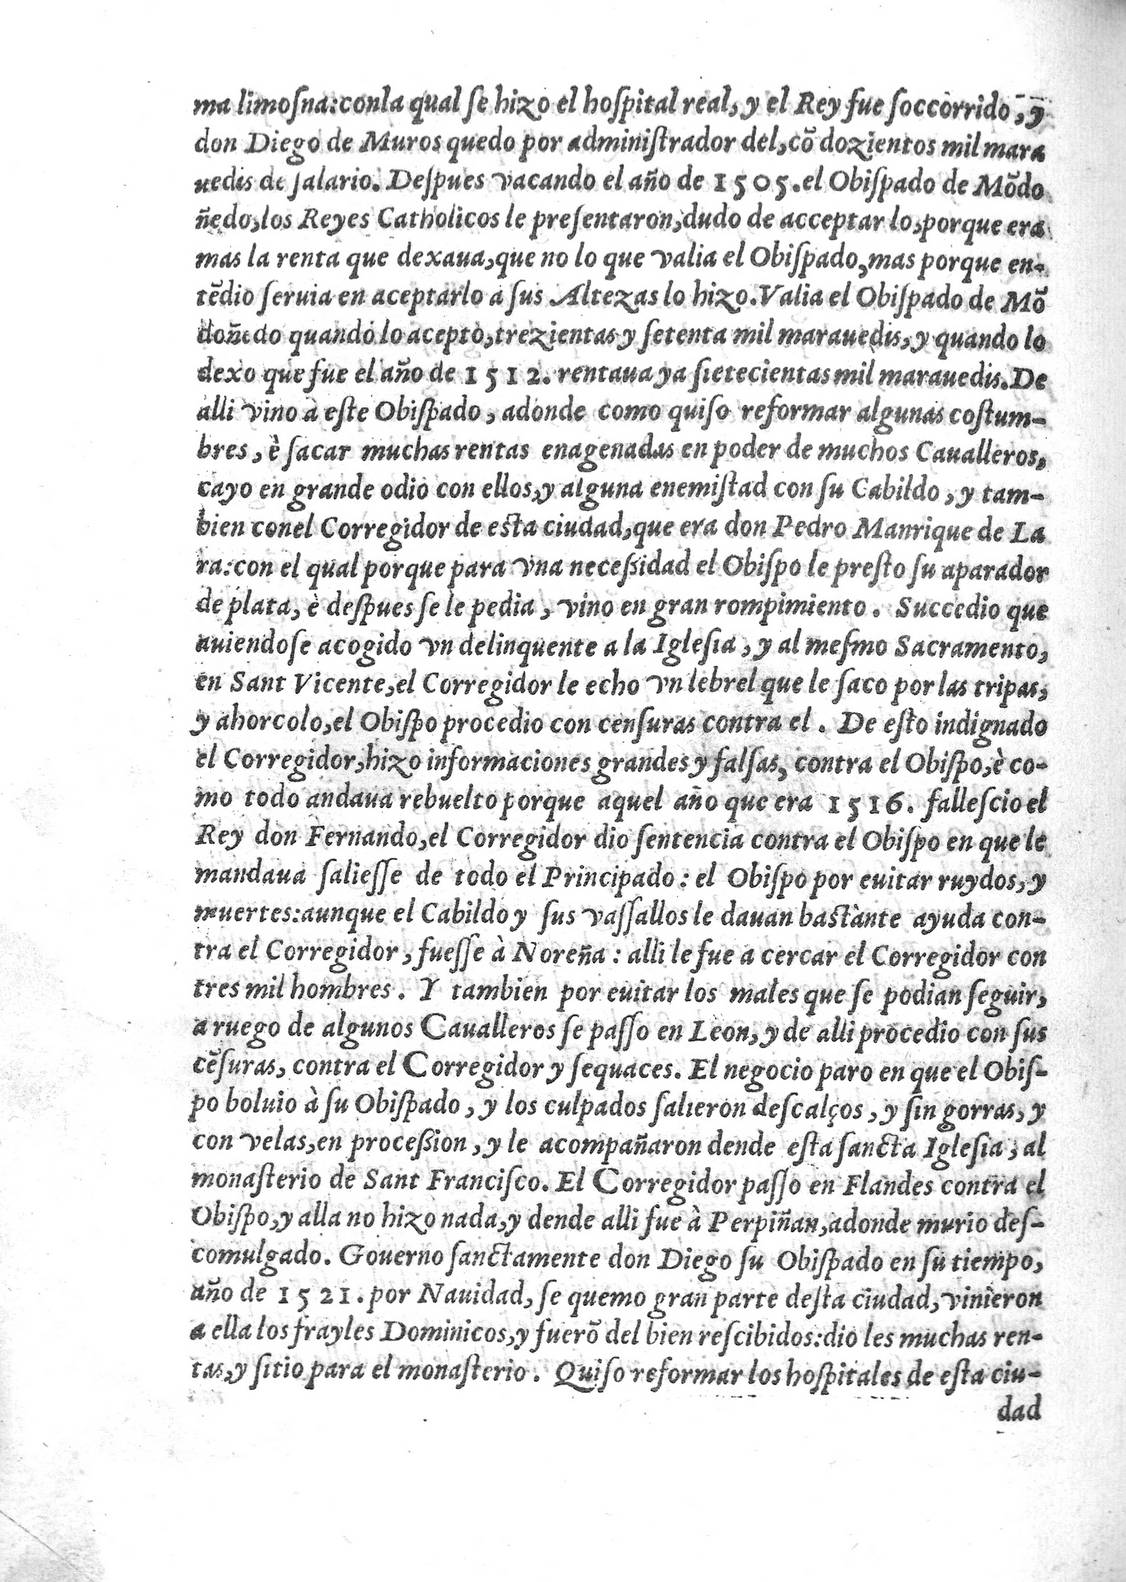 ma limoſna:conla qual ſe hizo el hoſpital real, y el Rey fue ſoccorrido, y
don Diego de Muros quedo por adminiſtrador del,cõ dozientos mil mara
uedis de ſalario. Deſpues vacando el año de 1505.el Obiſpado de Mõdo
ñedo,los Reyes Catholicos le preſentaron,dudo de acceptar lo,porque era
mas la renta que dexaua,que no lo que valia el Obiſpado,mas porque en-
tẽdio ſeruia en aceptarlo a ſus Altezas lo hizo.Valia el Obiſpado de Mõ
doñedo quando lo acepto,trezientas y ſetenta mil marauedis,y quando lo
dexo que fue el año de 1512. rentaua ya ſietecientas mil marauedis.De
alli vino a eſte Obiſpado, adonde como quiſo reformar algunas coſtum-
bres, è ſacar muchas rentas enagenadas en poder de muchos Caualleros,
cayo en grande odio con ellos,y alguna enemiſtad con ſu Cabildo, y tam-
bien conel Corregidor de eſta ciudad,que era don Pedro Manrique de La
ra:con el qual porque para vna neceſsidad el Obiſpo le preſto ſu aparador
de plata, è deſpues ſe le pedia, vino en gran rompimiento. Succedio que
auiendoſe acogido vn delinquente a la Igleſia, y al meſmo Sacramento,
en Sant Vicente,el Corregidor le echo vn lebrel que le ſaco por las tripas,
y ahorcolo,el Obiſpo procedio con cenſuras contra el. De eſto indignado
el Corregidor,hizo informaciones grandes y falſas, contra el Obiſpo,è co-
mo todo andaua rebuelto porque aquel año que era 1516. falleſcio el
Rey don Fernando,el Corregidor dio ſentencia contra el Obiſpo en que le
mandaua ſalieſſe de todo el Principado: el Obiſpo por euitar ruydos, y
muertes:aunque el Cabildo y ſus vaſſallos le dauan baſtànte ayuda con-
tra el Corregidor, fueſſe à Noreña: alli le fue a cercar el Corregidor con
tres mil hombres. Y tambien por euitar los males que ſe podian ſeguir,
a ruego de algunos Caualleros ſe paſſo en Leon, y de alli procedio con ſus
cẽſuras, contra el Corregidor y ſequaces. El negocio paro en que el Obiſ-
po boluio à ſu Obiſpado, y los culpados ſalieron deſcalços, y ſin gorras, y
con velas,en proceſsion, y le acompañaron dende eſta ſancta Igleſia, al
monaſterio de Sant Franciſco. El Corregidor paſſo en Flandes contra el
Obiſpo,y alla no hizo nada,y dende alli fue à Perpiñan,adonde murio deſ-
comulgado. Gouerno ſanctamente don Diego ſu Obiſpado en ſu tiempo,
año de 1521. por Nauidad, ſe quemo gran parte deſta ciudad, vinieron
a ella los frayles Dominicos,y fuerõ del bien reſcibidos:dio les muchas ren-
tas,y ſitio para el monaſterio. Quiſo reformar los hoſpitales de eſta ciu-
dad